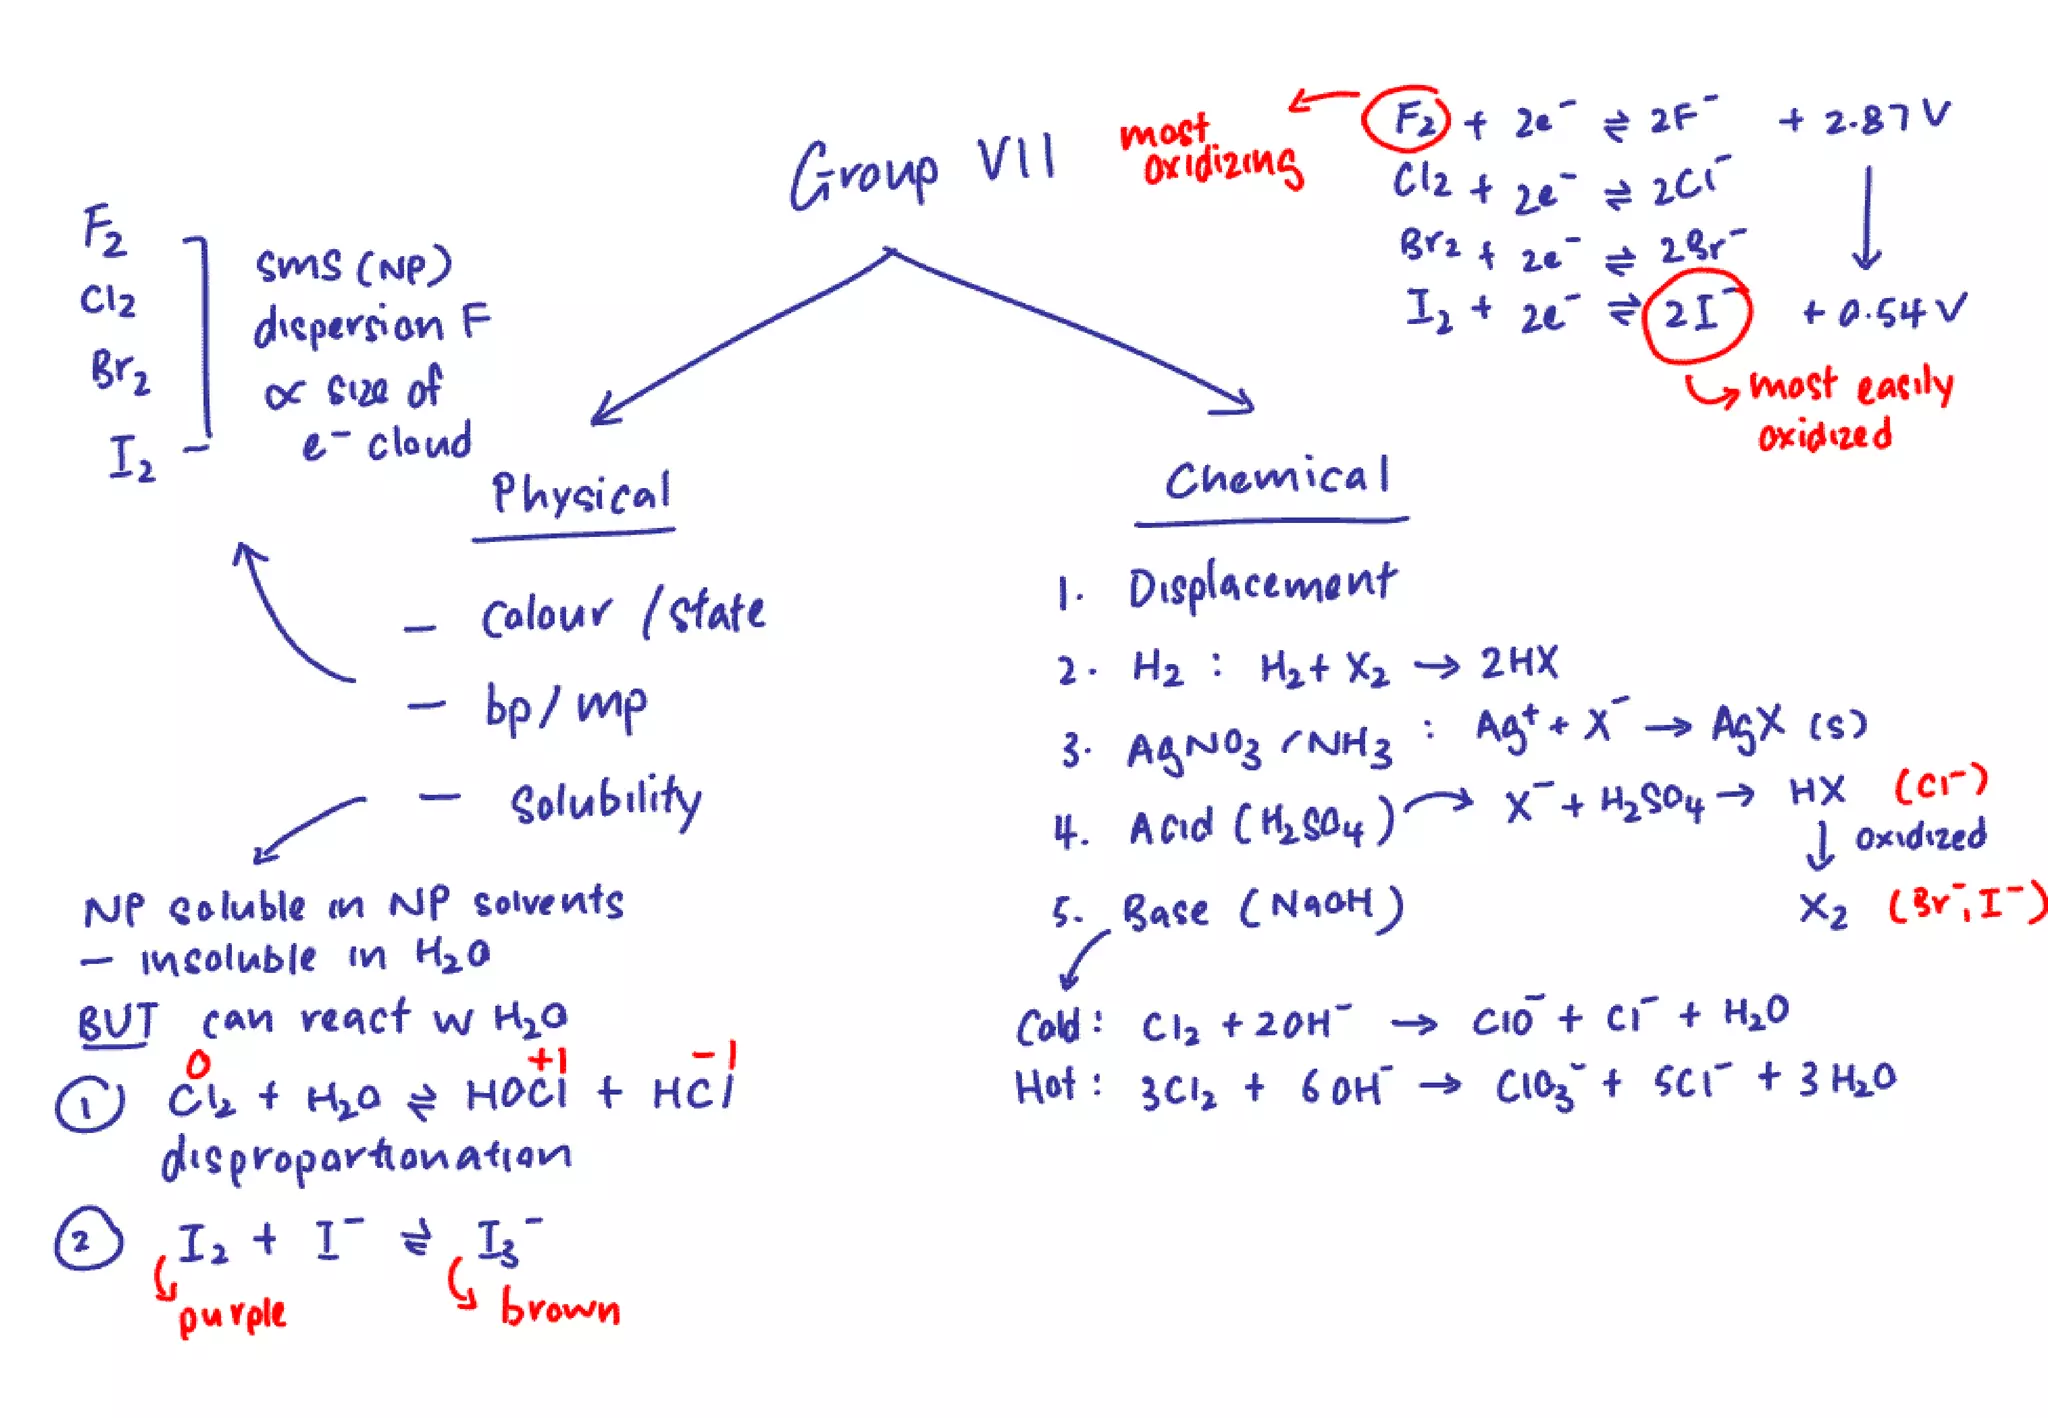 Group VII
most oxidizing
F₂ + 2e⁻ ⇌ 2F⁻ + 2.87 V
Cl₂ + 2e⁻ ⇌ 2Cl⁻
Br₂ + 2e⁻ ⇌ 2Br⁻
I₂ + 2e⁻ ⇌ 2I⁻ + 0.54 V
most easily
oxidized
F₂
Cl₂
Br₂
I₂
SMS (NP)
dispersion F
∝ size of
e⁻ cloud
Physical
- Colour / state
- bp / mp
- Solubility
NP soluble in NP solvents
- insoluble in H₂O
BUT can react w H₂O
0 +1 -1
① Cl₂ + H₂O ⇌ HOCl + HCl
disproportionation
② I₂ + I⁻ ⇌ I₃⁻
purple brown
Chemical
1. Displacement
2. H₂ : H₂ + X₂ → 2HX
3. AgNO₃ / NH₃ : Ag⁺ + X⁻ → AgX (s)
4. Acid (H₂SO₄) → X⁻ + H₂SO₄ → HX (Cl⁻)
↓ oxidized
X₂ (Br⁻, I⁻)
5. Base (NaOH)
Cold : Cl₂ + 2OH⁻ → ClO⁻ + Cl⁻ + H₂O
Hot : 3Cl₂ + 6OH⁻ → ClO₃⁻ + 5Cl⁻ + 3H₂O